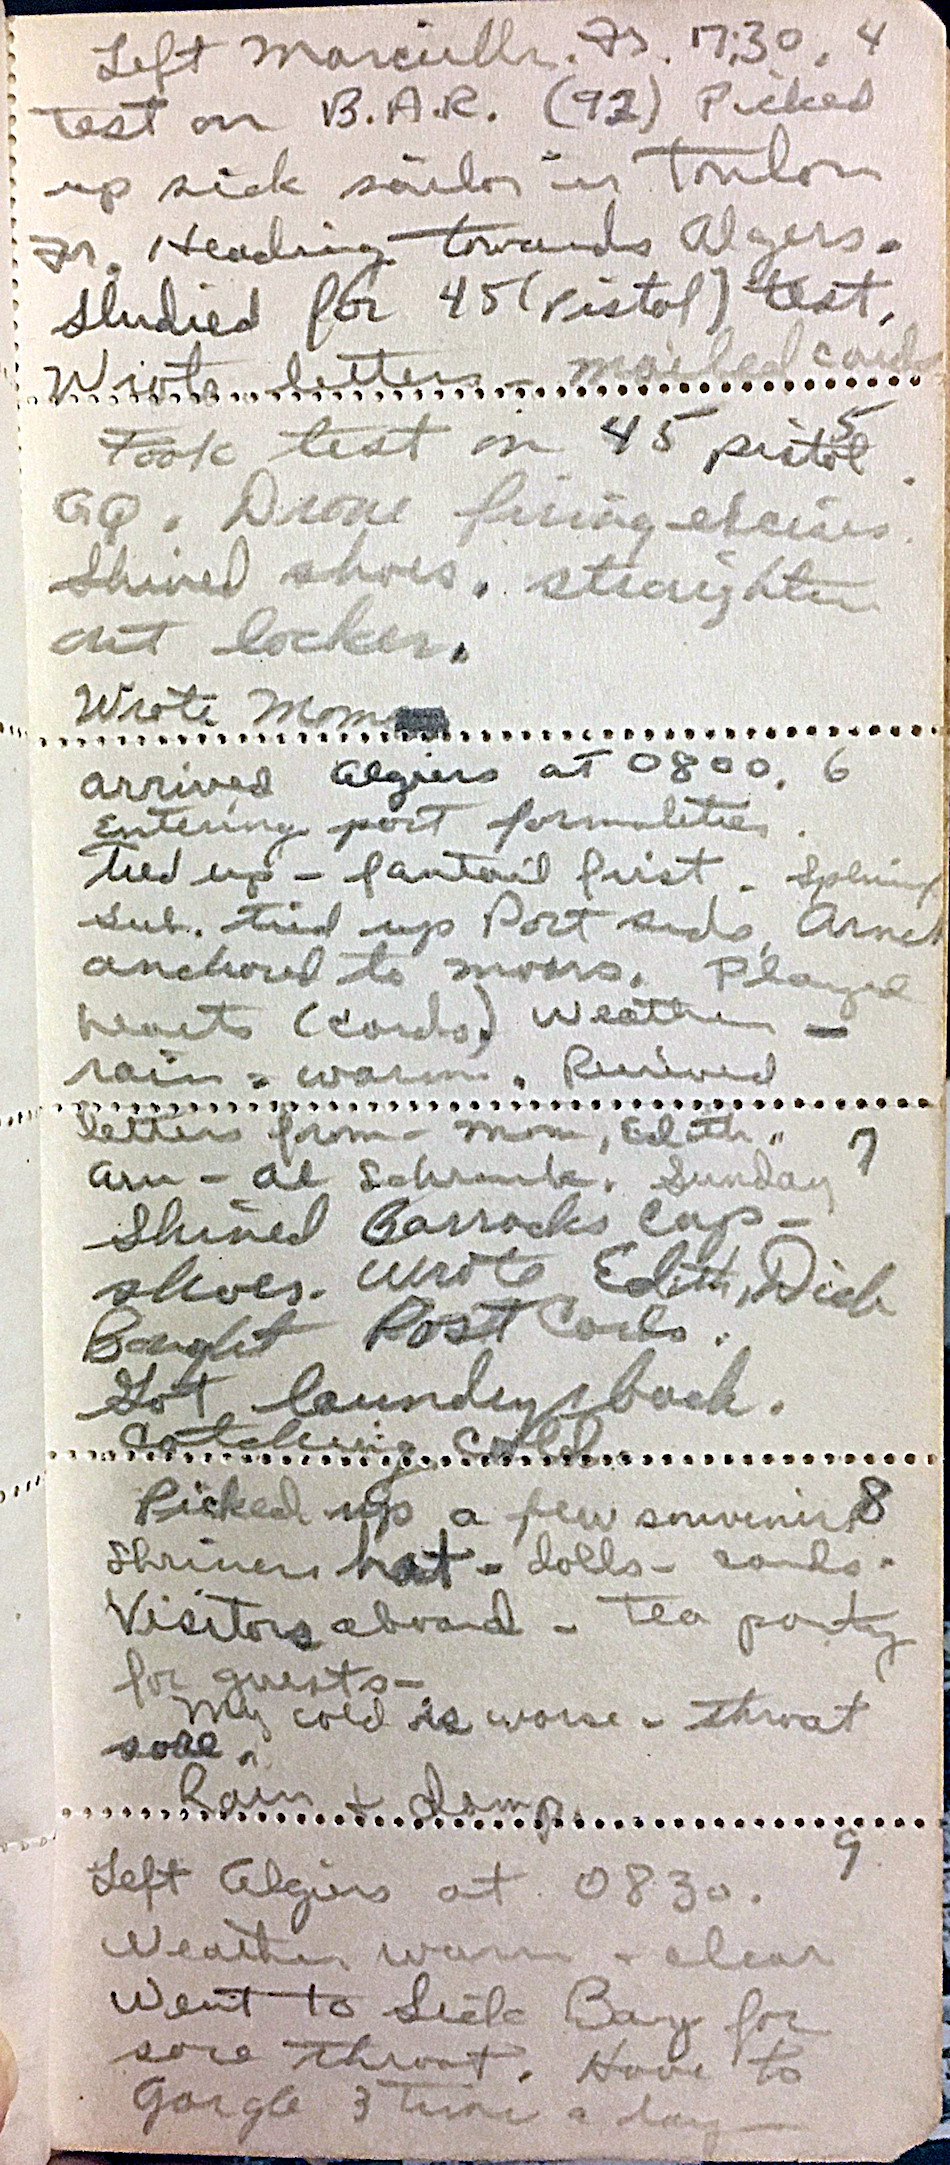 Left Marcielle. Fr. 17:30. 4
test on B.A.R. (92) Picked
up sick sailor in Toulon
Fr. Heading towards Algers.
Studied for 45 (Pistol) test.
Wrote letters - mailed cards
Took test on 45 pistol 5
GQ. Drone firing excises.
Shined shoes. straighten
out locker.
Wrote Mom
arrived Algiers at 0800. 6
Entering port formalities.
Tied up - fantail first.
sub. tied up Port side,
anchored to moors. Played
hearts (cards) Weather -
rain - warm. Recieved
letters from - Mom, Edith,
7
Al Schrank. Sunday
Shined Barracks Cap -
shoes. wrote Edith, Dick
Bought Post Cards.
Got laundry back.
Catching Cold.
Picked up a few souvenirs 8
Shriners hat - dolls -
Visitors aboard - Tea party
for guests -
My cold is worse - throat
sore.
Rain & damp.
9
Left Algiers at 0830.
Weather warm & clear
Went to Sick Bay for
sore throat. Have to
Gargle 3 time a day -